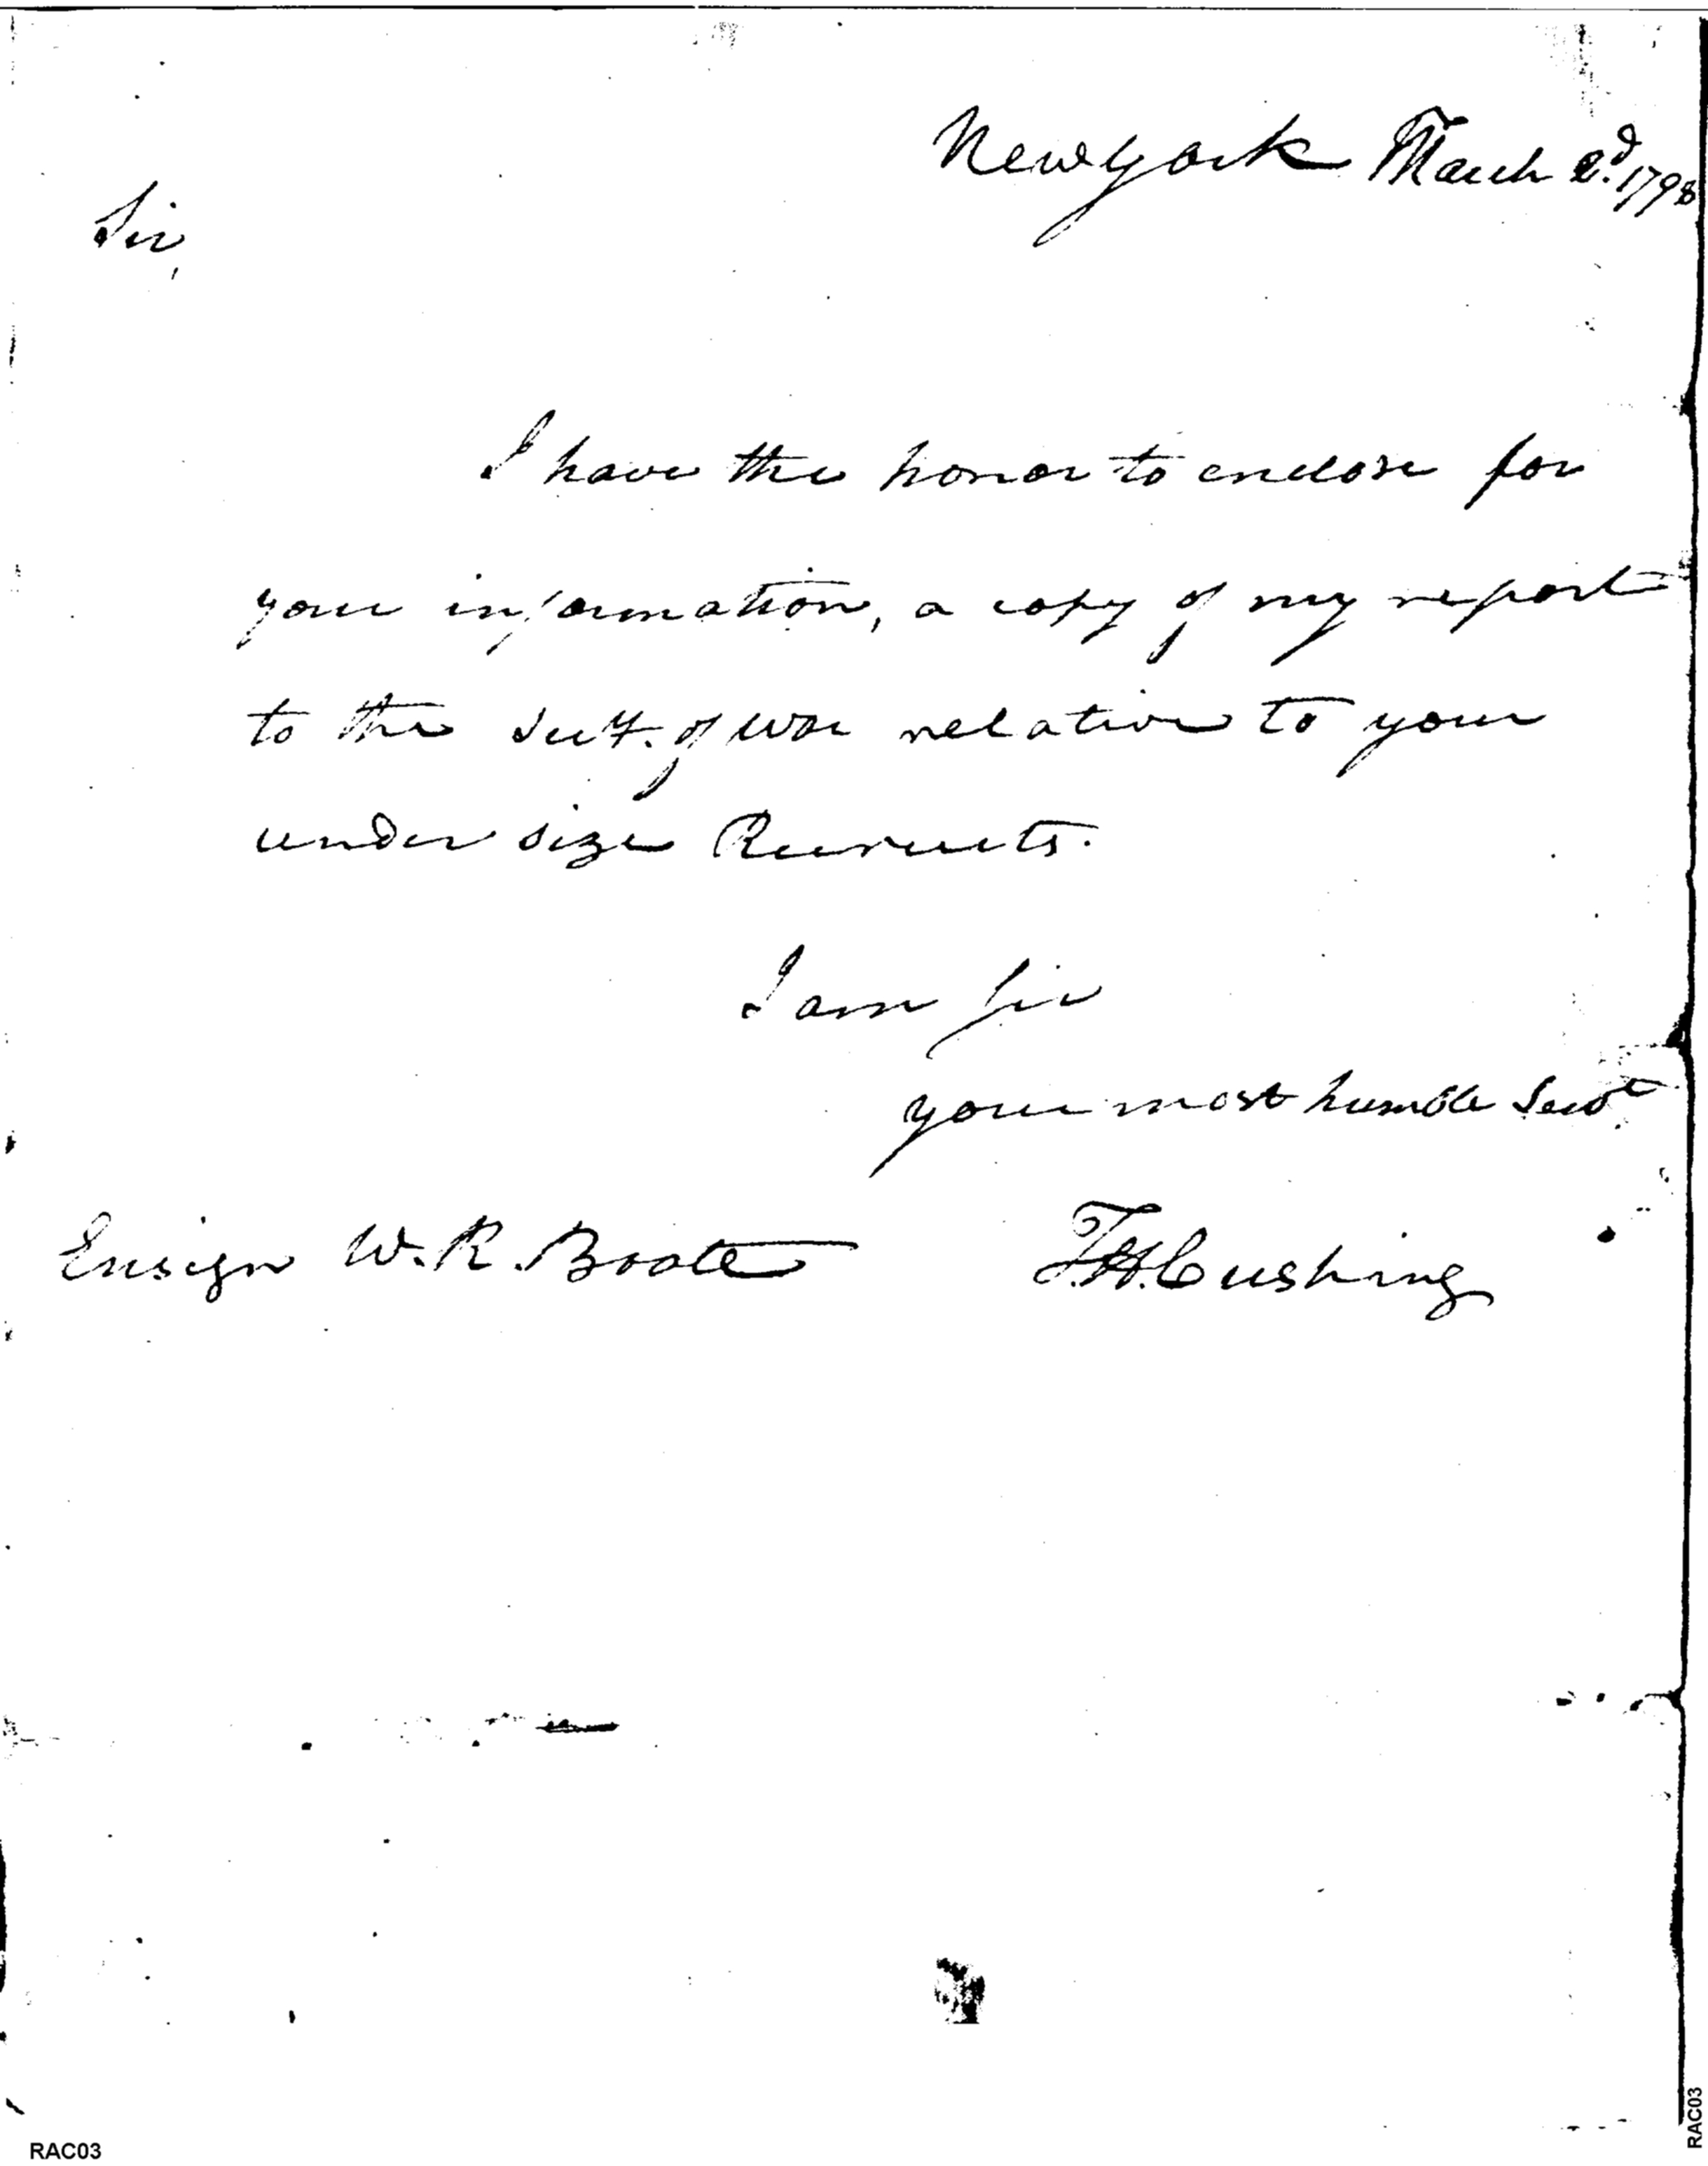 Newyork March 2d. 1798
Sir,
I have the honor to enclose for
your information, a copy of my report
to the Secy. of War relative to your
under size Recruits.
I am Sir
your most humble Servt
Ensign W. R. Boote
T.H. Cushing
RAC03
RAC03